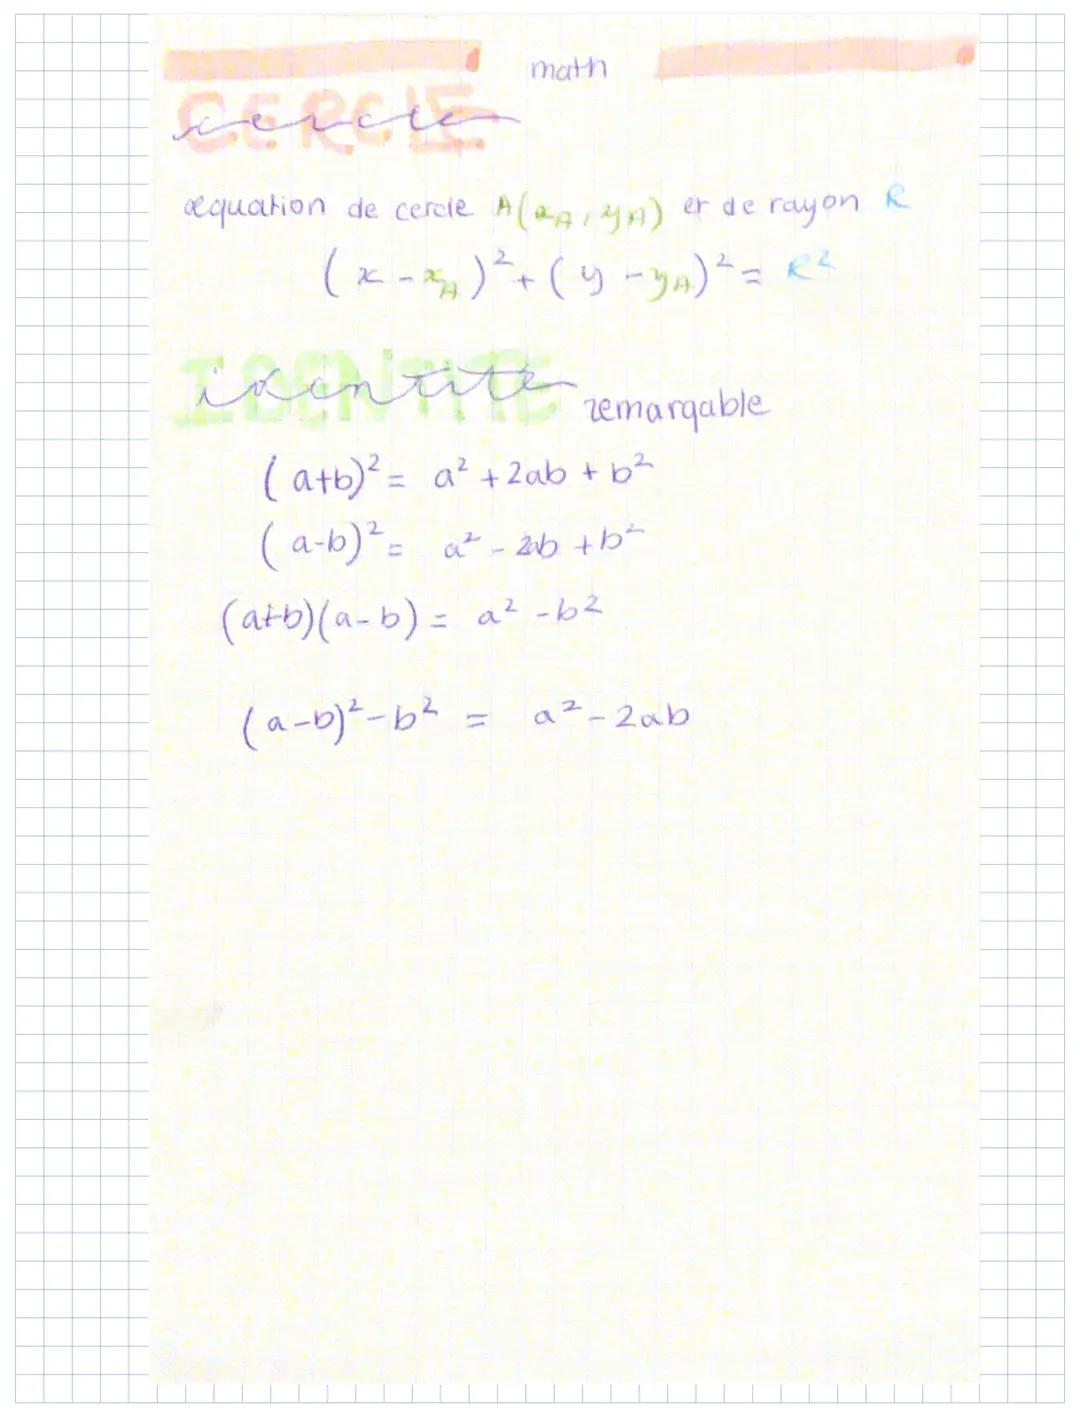 math
CERCLE
cercle
æquation de cercle A(xA, yA) et de rayon R
(x - xA)² + (y - yA)² = R²
IDENTITE
identité remarqable
(a+b)² = a² + 2ab + b²
(a-b)² = a² - 2ab + b²
(a+b)(a-b) = a² - b²
(a-b)² - b² = a² - 2ab